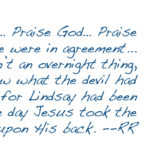 ... Praise God... Praise
e were in agreement....
n't an overnight thing,
w what the devil had
for Lindsay had been
e day Jesus took the
upon His back. --RR